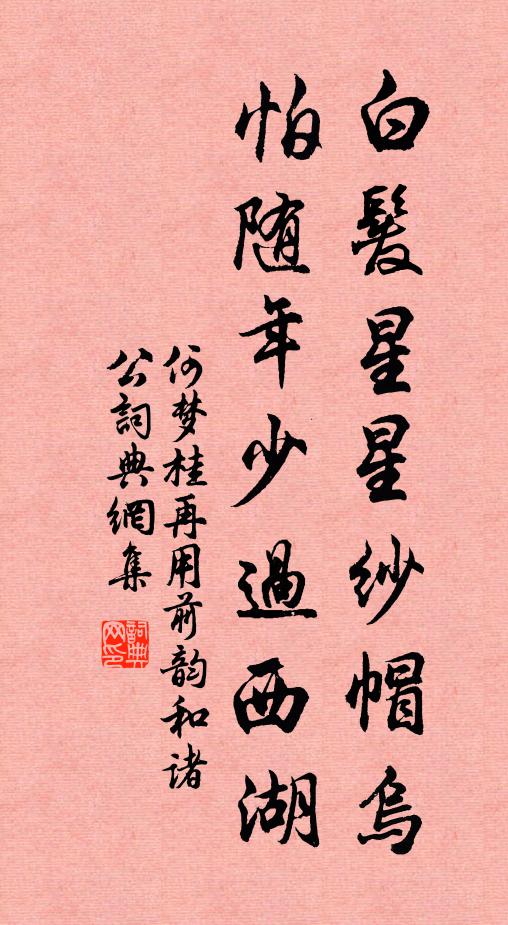 白髮星星纱帽烏
怕随年少過西湖
何梦桂再用前韵和诸
公詞典網集
詞典网印